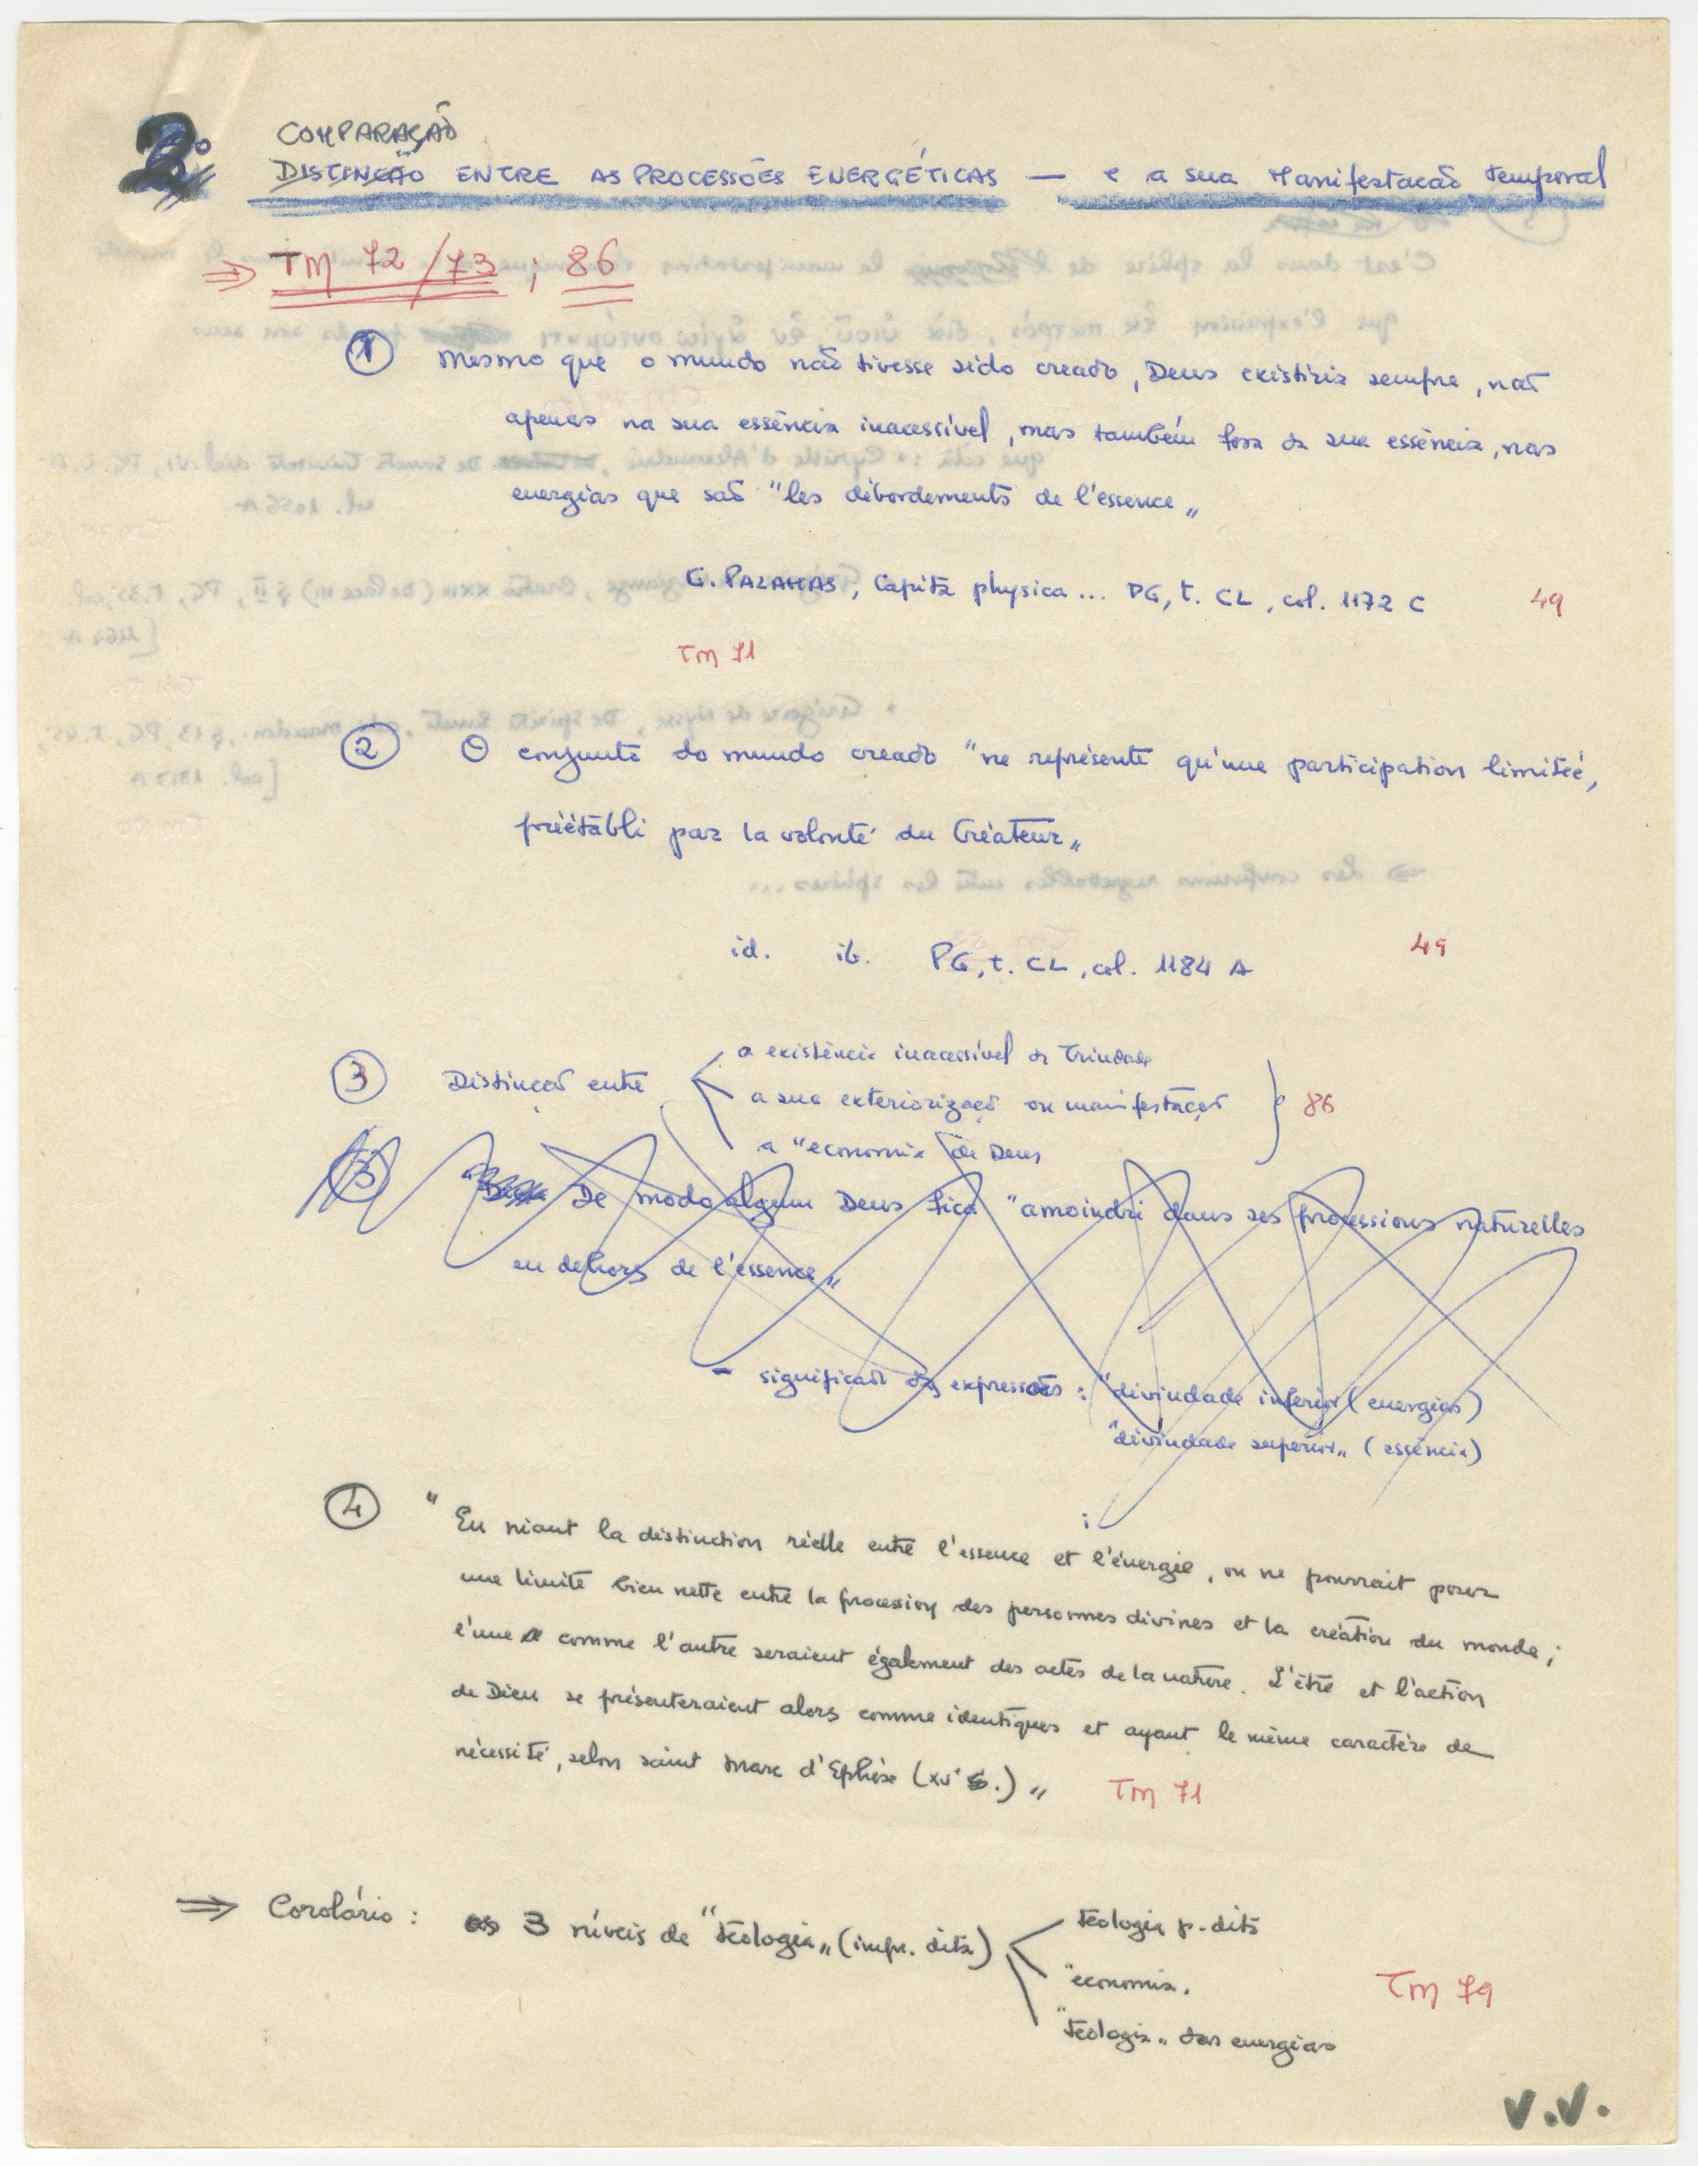 2º
COMPARAÇÃO
DISTINÇÃO ENTRE AS PROCESSÕES ENERGÉTICAS — e a sua Manifestação temporal
⇒ TM 72/73 ; 86
① Mesmo que o mundo não tivesse sido creado, Deus existiria sempre, não
apenas na sua essência inacessível, mas também fora da sua essência, nas
energias que são "les débordements de l'essence"
G. PALAMAS, Capita physica... PG, t. CL, col. 1172 C 49
TM 71
② O conjunto do mundo creado "ne représente qu'une participation limitée,
préétabli par la volonté du Créateur"
id. ib. PG, t. CL, col. 1184 A 49
③ Distinção entre a existência inacessível da Trindade
a sua exteriorização ou manifestação 86
a "economia de Deus
③ De modo algum Deus fica "amoindri dans ses processions naturelles
en dehors de l'essence"
- significado das expressões : "divindade inferior (energias)
"divindade superior" (essência)
④ "En niant la distinction réelle entre l'essence et l'énergie, on ne pourrait poser
une limite bien nette entre la procession des personnes divines et la création du monde ;
l'une comme l'autre seraient également des actes de la nature. L'être et l'action
de Dieu se présenteraient alors comme identiques et ayant le même caractère de
nécessité, selon saint Marc d'Ephèse (XVe S.)" TM 71
⇒ Corolário : os 3 níveis de "teologia" (impr. dita) teologia p. dita
"economia.
"teologia" das energias
TM 79
V.V.